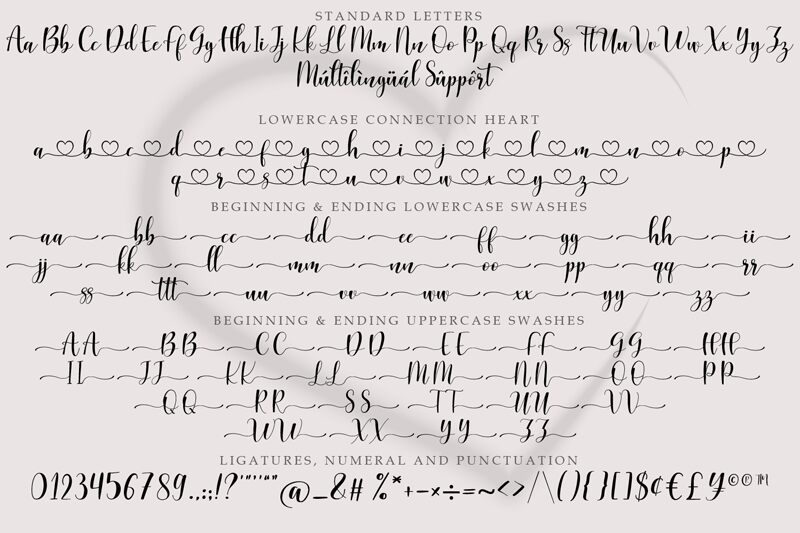 STANDARD LETTERS
Aa Bb Cc Dd Ee Ff Gg Hh Ii Jj Kk Ll Mm Nn Oo Pp Qq Rr Ss Tt Uu Vv Ww Xx Yy Zz
Múltîlìngüál Sûppôrt
LOWERCASE CONNECTION HEART
a♡b♡c♡d♡e♡f♡g♡h♡i♡j♡k♡l♡m♡n♡o♡p♡
q♡r♡s♡t♡u♡v♡w♡x♡y♡z♡
BEGINNING & ENDING LOWERCASE SWASHES
aa bb cc dd ee ff gg hh ii
jj kk ll mm nn oo pp qq rr
ss ttt uu vv ww xx yy zz
BEGINNING & ENDING UPPERCASE SWASHES
AA BB CC DD EE FF GG HH
II JJ KK LL MM NN OO PP
QQ RR SS TT UU VV
WW XX YY ZZ
LIGATURES, NUMERAL AND PUNCTUATION
0123456789.,:;!?'"''""@_&# %*+-×÷=~<>/|\(){}[]$¢€£¥©℗™